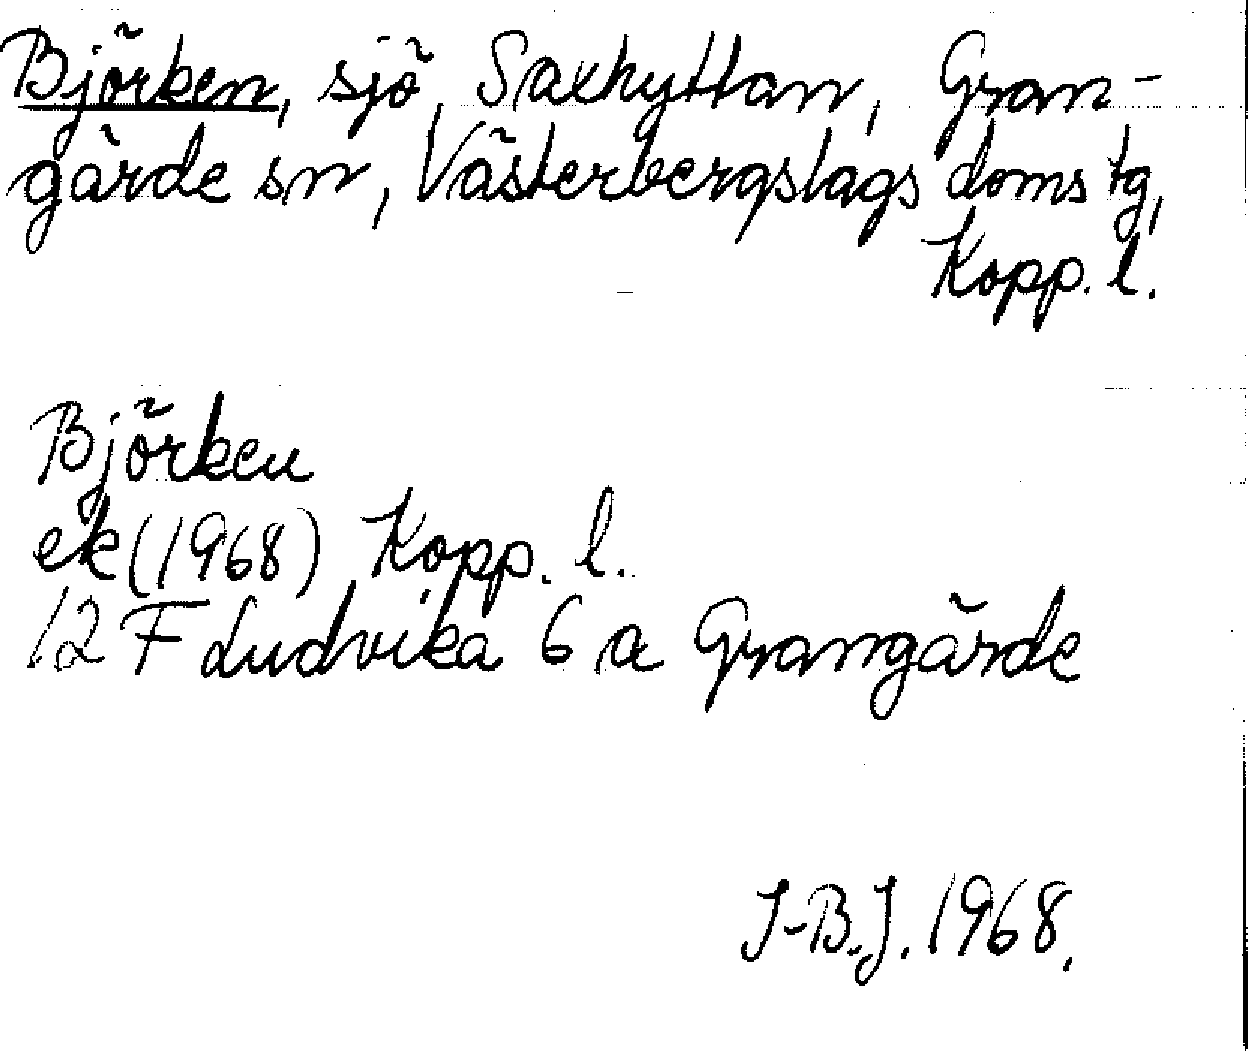 Björken, sjö, Saxhyttan, Gran-
gärde sn, Västerbergslags doms tg,
Kopp. l.
Björken
ek (1968) Kopp. l.
12 F Ludvika 6 a Grangärde
I-B.J. 1968.